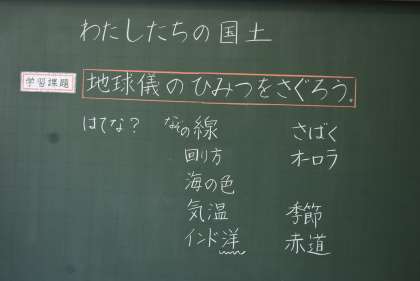 わたしたちの国土
学習課題 地球儀のひみつをさぐろう。
はてな? なぞの線 さばく
回り方 オーロラ
海の色
気温 季節
インド洋 赤道